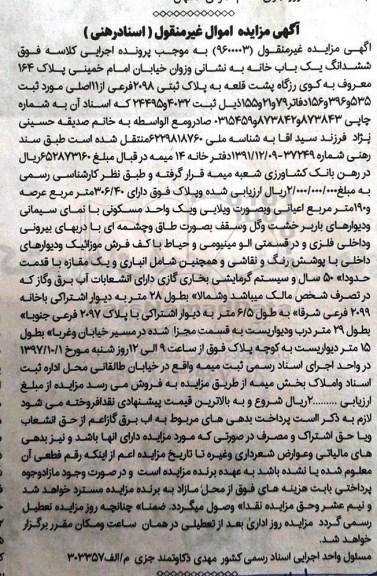 آگهی مزایده اموال غیرمنقول ( اسنادرهنی )
آگهی مزایده غیرمنقول (۹۶۰۰۰۰۳) به موجب پرونده اجرایی کلاسه فوق
ششدانگ یک باب خانه به نشانی وزوان خیابان امام خمینی پلاک ۱۶۴
معروف به کوی رزگاه پشت قلعه به پلاک ثبتی ۲۰۹۸فرعی از۱۱اصلی مورد ثبت
۵۳۵و۳۹۶و۱۵۶دفاتر۷۹و۲۱و۱۵۵ذیل ثبت ۴۰۳۲و۲۴۴۹۵که اسناد آن به شماره
چاپی ۸۷۳۸۴۳و۸۷۳۸۴۲و۰۳۱۵۴۵۹ صادرومع الواسطه به خانم صدیقه حسینی
نژاد فرزند سید اقا به شناسه ملی ۶۲۲۹۸۱۸۷۶۰منتقل شده است طبق سند
رهنی شماره ۳۷۲۴۹-۱۳۹۱/۱۲/۰۹دفترخانه ۱۴ میمه در قبال مبلغ ۶۵۲۸۷۳۱۶۰ریال
در رهن بانک کشاورزی شعبه میمه قرار گرفته و طبق نظر کارشناسی رسمی
به مبلغ۲/۰۰۰/۰۰۰/۰۰۰ریال ارزیابی شده وپلاک فوق دارای ۳۰۶/۴۰متر مربع عرصه
و۱۹۰متر مربع اعیانی وبصورت ویلایی ویک واحد مسکونی با نمای سیمانی
ودیوارهای باربر خشت وگل وسقف بصورت طاق وچشمه ای با دربهای بیرونی
وداخلی فلزی و درقسمتی الو مینیومی و حیاط با کف فرش موزائیک ودیوارهای
داخلی با پوشش رنگ و نقاشی و همچنین شامل انباری و یک مغازه با قدمت
حدودا» ۵۰ سال و سیستم گرمایشی بخاری گازی دارای انشعابات آب برق وگاز که
در تصرف شخص مالک میباشد وشمالا» بطول ۲۸ متر به دیوار اشتراکی باخانه
۲۰۹۹ فرعی شرقا» به طول ۶/۵ متر به دیوار اشتراکی با پلاک ۲۰۹۷ فرعی جنوبا»
بطول ۲۹ متر درب ودیواریست به قسمت مجزا شده درمسیر خیابان وغربا» بطول
۱۵ متر دیواریست به کوچه پلاک فوق از ساعت ۹ الی ۱۲روز شنبه مورخ ۱۳۹۷/۱۰/۱
در واحد اجرای اسناد رسمی ثبت میمه واقع در خیابان طالقانی محل اداره ثبت
اسناد واملاک بخش میمه از طریق مزایده به فروش می رسد مزایده از مبلغ
ارزیابی ۲۰۰۰۰۰۰۰۰۰ریال شروع و به بالاترین قیمت پیشنهادی نقدافروخته می شود
لازم به ذکر است پرداخت بدهی های مربوط به اب برق گازاعم از حق انشعاب
ویا حق اشتراک و مصرف در صورتی که مورد مزایده دارای انها باشد و نیز بدهی
های مالیاتی وعوارض شعرداری وغیره تا تاریخ مزایده اعم از اینکه رقم قطعی آن
معلوم شده یا نشده باشد به عهده برنده مزایده است و در صورت وجود مازادوجوه
پرداختی بابت هزینه های فوق از محل مازاد به برنده مزایده مسترد خواهد شد
و نیم عشر وحق مزایده نقدا» وصول میگردد. ضمنا» چنانچه روز مزایده تعطیل
رسمی گردد مزایده روز اداری بعد از تعطیلی در همان ساعت ومکان مقرر برگزار
خواهد شد.
مسئول واحد اجرایی اسناد رسمی کشور مهدی ذکاوتمند جزی م/الف۳۰۳۳۵۷